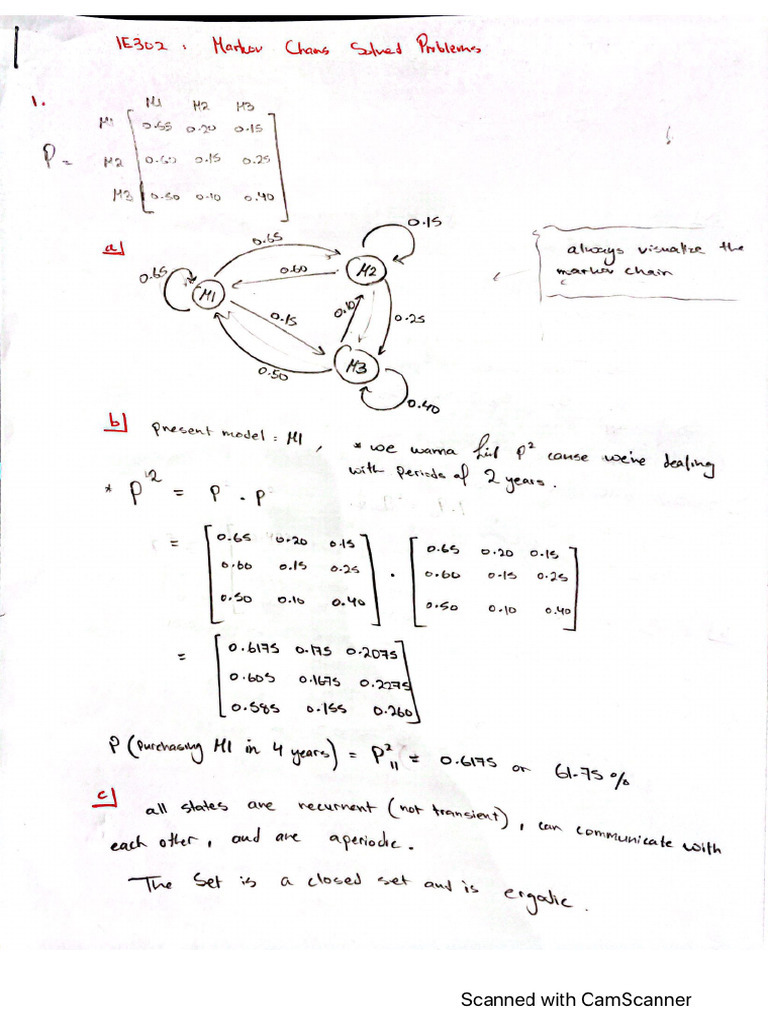 1
IE302 : Markov Chains Solved Problems
1.
M1 M2 M3
M1 0.65 0.20 0.15
P = M2 0.60 0.15 0.25
M3 0.50 0.10 0.40
a)
0.15
0.65
0.65
0.60
M2
M1
always visualize the
markov chain
0.15
0.10
0.25
M3
0.50
0.40
b) present model : M1 , * we wanna find P² cause we're dealing
with periods of 2 years.
* P² = P . P
= [0.65 0.20 0.15] . [0.65 0.20 0.15]
[0.60 0.15 0.25] [0.60 0.15 0.25]
[0.50 0.10 0.40] [0.50 0.10 0.40]
= [0.6175 0.175 0.2075]
[0.605 0.1675 0.2275]
[0.585 0.155 0.260]
P (purchasing M1 in 4 years) = P²₁₁ = 0.6175 or 61.75 %
c) all states are recurrent (not transient), can communicate with
each other, and are aperiodic.
The set is a closed set and is ergodic.
Scanned with CamScanner